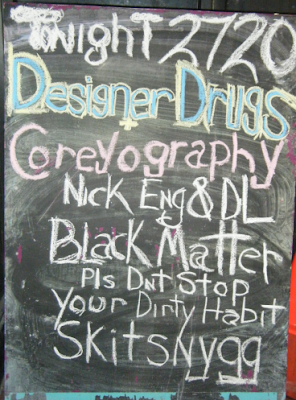 Tonight 2/20
Designer Drugs
+
Coreyography
Nick Eng & DL
Black Matter
Pls Dnt Stop
Your Dirty Habit
Skitsnygg